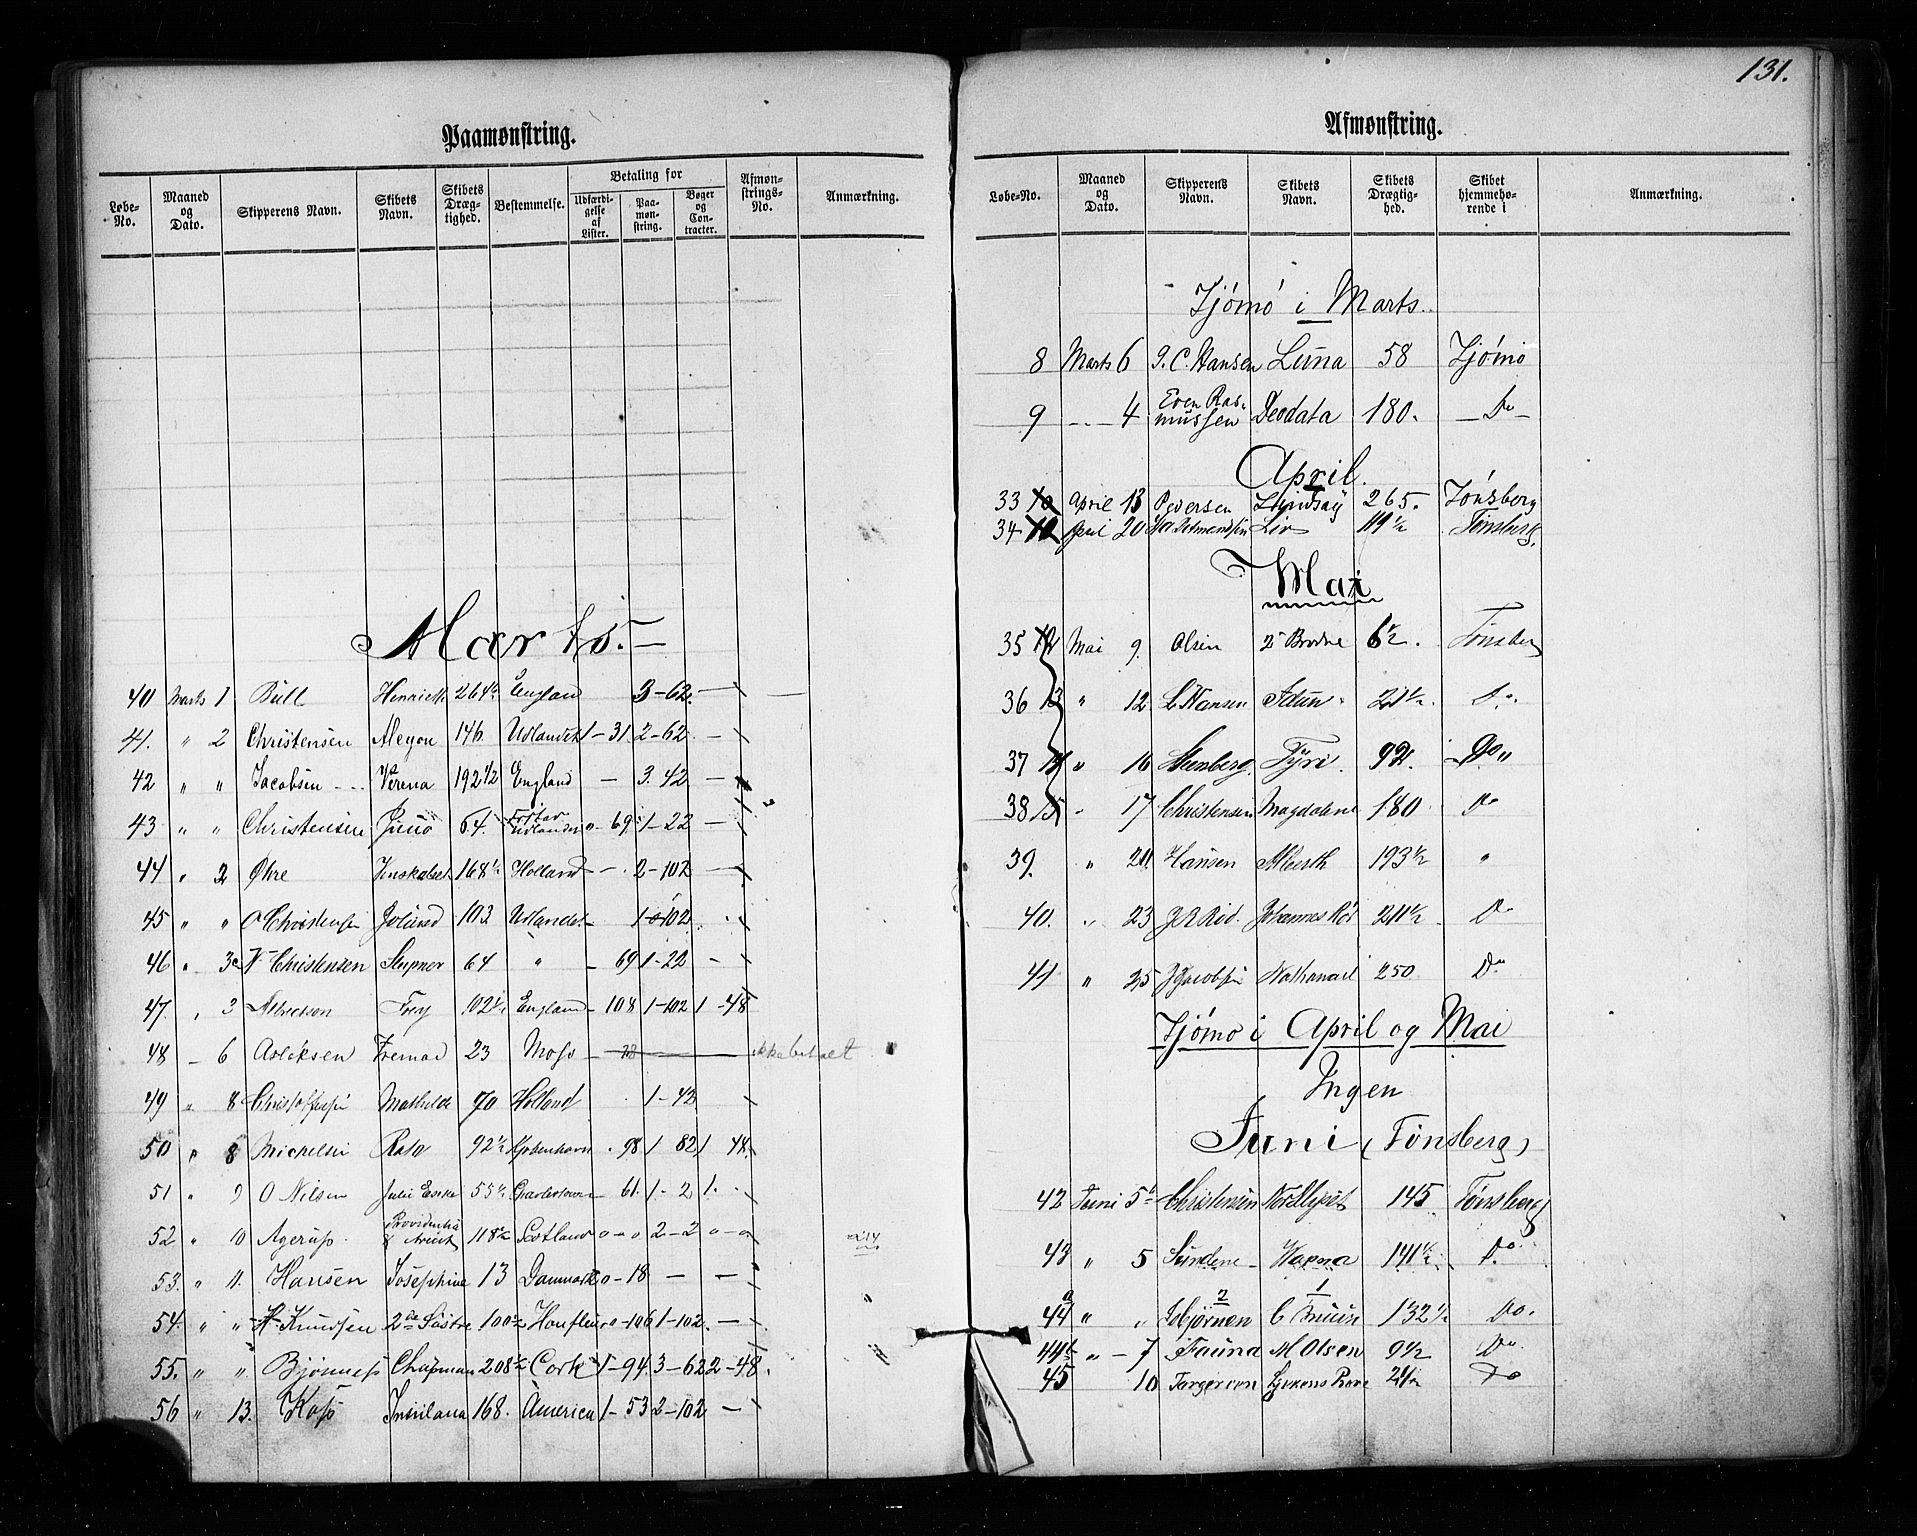 131.
Paamønstring.
Løbe-No. Maaned og Dato. Skipperens Navn. Skibets Navn. Skibets Dræg-tighed. Bestemmelse. Betaling for Udfærdi-gelse af Lister. Paa-møn-string. Bøger og Con-tracter. Afmøn-strings-No. Anmærkning.
Marts.
40 Marts 1 Bull Henriette 264½ England 3-62. —
41. " 2 Christensen 146 Udlandet 1-31. 2-62 —
42 " " Jacobsen Verena 192 1/2 England — 3. 42 —
43 " " Christensen Juno 64. 69. 1-22 —
44 " 2 Øhre 168½ Holland — 2-102 —
45 " " O Christensen 103 Udlandet — 102
46 " 3 N Christensen Sleipner 64 " — 69 1-22 —
47. " 3 Albretsen Frey 102½ England — 108 1-102 1-48
48 — 6 Fremad 23 Moss — ikke betalt
49 " 8 Mathilde 70 Holland 1-42
50 " 8 Michelsen Rota 92½ Kjøbenhavn . 98 1 82 1 48.
51 " 9 O Nilsen 55½ Charlestown — 61. 1-2 1.
52 " 10 Agerup Providentia 118½ Scotland 0-0 2-2 0-0
53. " 11. Hansen Josephine 13 Danmark 0-18 — —
54. " " H. Knudsen 2de Søstre 100½ Honfleur 0-106 1-102. —
55. " " Bjønness Chapman 208½ Cork 1-94. 3-62 2-48.
56 " 13. Koss 168. America 1-53 2-102 —
Afmønstring.
Løbe-No. Maaned og Dato. Skipperens Navn. Skibets Navn. Skibets Drægtig-hed. Skibet hjemmehø-rende i Anmærkning.
Tjømø i Marts.
8 Marts 6 I. C. Hansen Luna 58 Tjømø
9 - - 4 Even Ras-mussen Deodata 180. — Do —
April.
33 April 13 Pedersen Lindsay 265. Tønsberg
34 April 20 Liv 119½ Tønsberg.
Mai
35 Mai 9. Olsen 2 Brødre 6½. Tønsberg
36 " 12. L. Hansen Idun 21½. Do.
37 " 16 Stenberg. Tyri. 92. Do "
38 - 17 Christensen Magdalene 180 Do
39. " 20. Hansen 193½ "
40. " 23 Johannes Rød 211½ Do
41 " 25 Jacobsen Nathanael 250 Do
Tjømø i April og Mai
Ingen
Juni (Tønsberg)
42 Juni 5 Christensen Nordlyset 145 Tønsberg
43 " 5 141½ Do.
44a " " 2 Bjørnøn 1 132½ Do.
44b " - 7 Fauna M Olsen 9½ Do.
45 10 Do